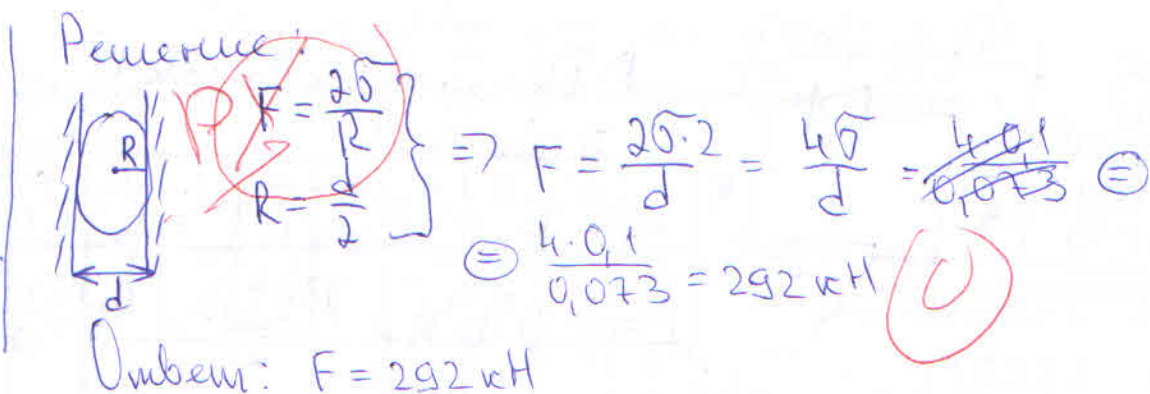 Решение:
P F = 2σ/R
R = d/2
R
d
=> F = 2σ·2/d = 4σ/d = 4·0,1/0,073 =
= 4·0,1/0,073 = 292 кН 0
Ответ: F = 292 кН